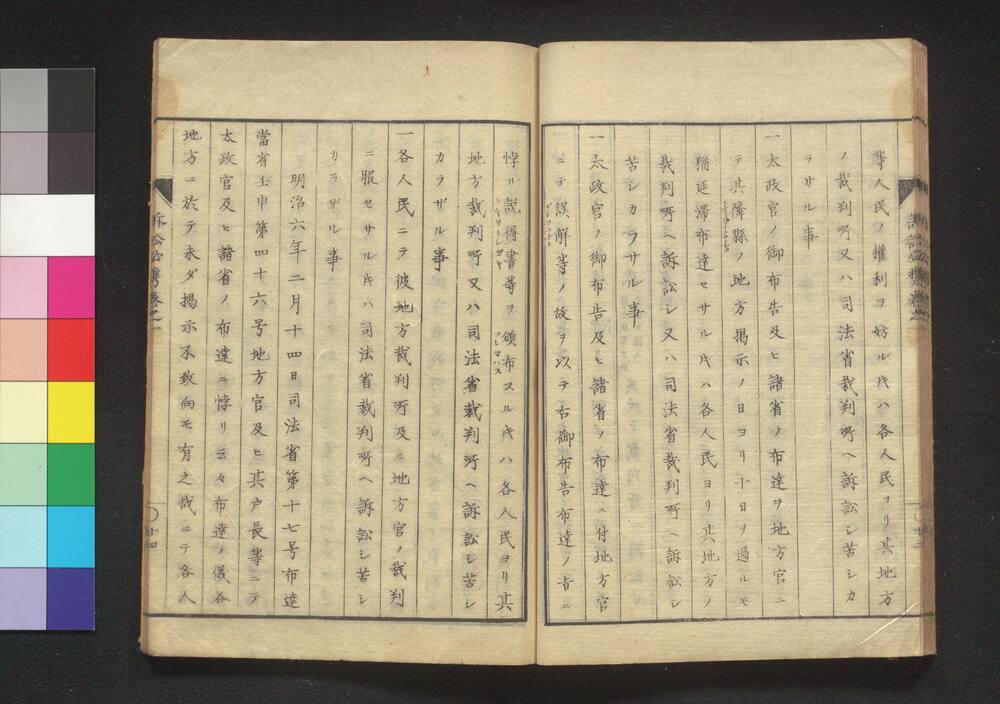 等人民ノ權利ヲ妨ル𪜈ハ各人民ヨリ其地方
ノ裁判所又ハ司法省裁判所ヘ訴訟シ苦シカ
ラサル事
一太政官ノ御布告及ヒ諸省ノ布達ヲ地方官ニ
テ其隣縣ノ地方掲示ノ日ヨリ十日ヲ過ルモ
猶延滞布達セサル𪜈ハ各人民ヨリ其地方ノ
裁判所ヘ訴訟シ又ハ司法省裁判所ヘ訴訟シ
苦シカラサル事
一太政官ノ御布告及ヒ諸省ノ布達ニ付地方官
ニテ誤解等ノ故ヲ以テ右御布告布達ノ旨ニ
悖ル説得書等ヲ頒布スル𪜈ハ各人民ヨリ其
地方裁判所又ハ司法省裁判所ヘ訴訟シ苦シ
カラザル事
一各人民ニテ彼地方裁判所及ヒ地方官ノ裁判
ニ服セサル𪜈ハ司法省裁判所ヘ訴訟シ苦シ
カラザル事
明治六年二月十四日司法省第十七号布達
當省壬申第四十六号地方官及ヒ其戸長等ニテ
太政官及ヒ諸省ノ布達ニ悖リ云々布達ノ儀各
地方ニ於テ未ダ掲示不致向モ有之哉ニテ各人
訴訟必携巻之一
廿四